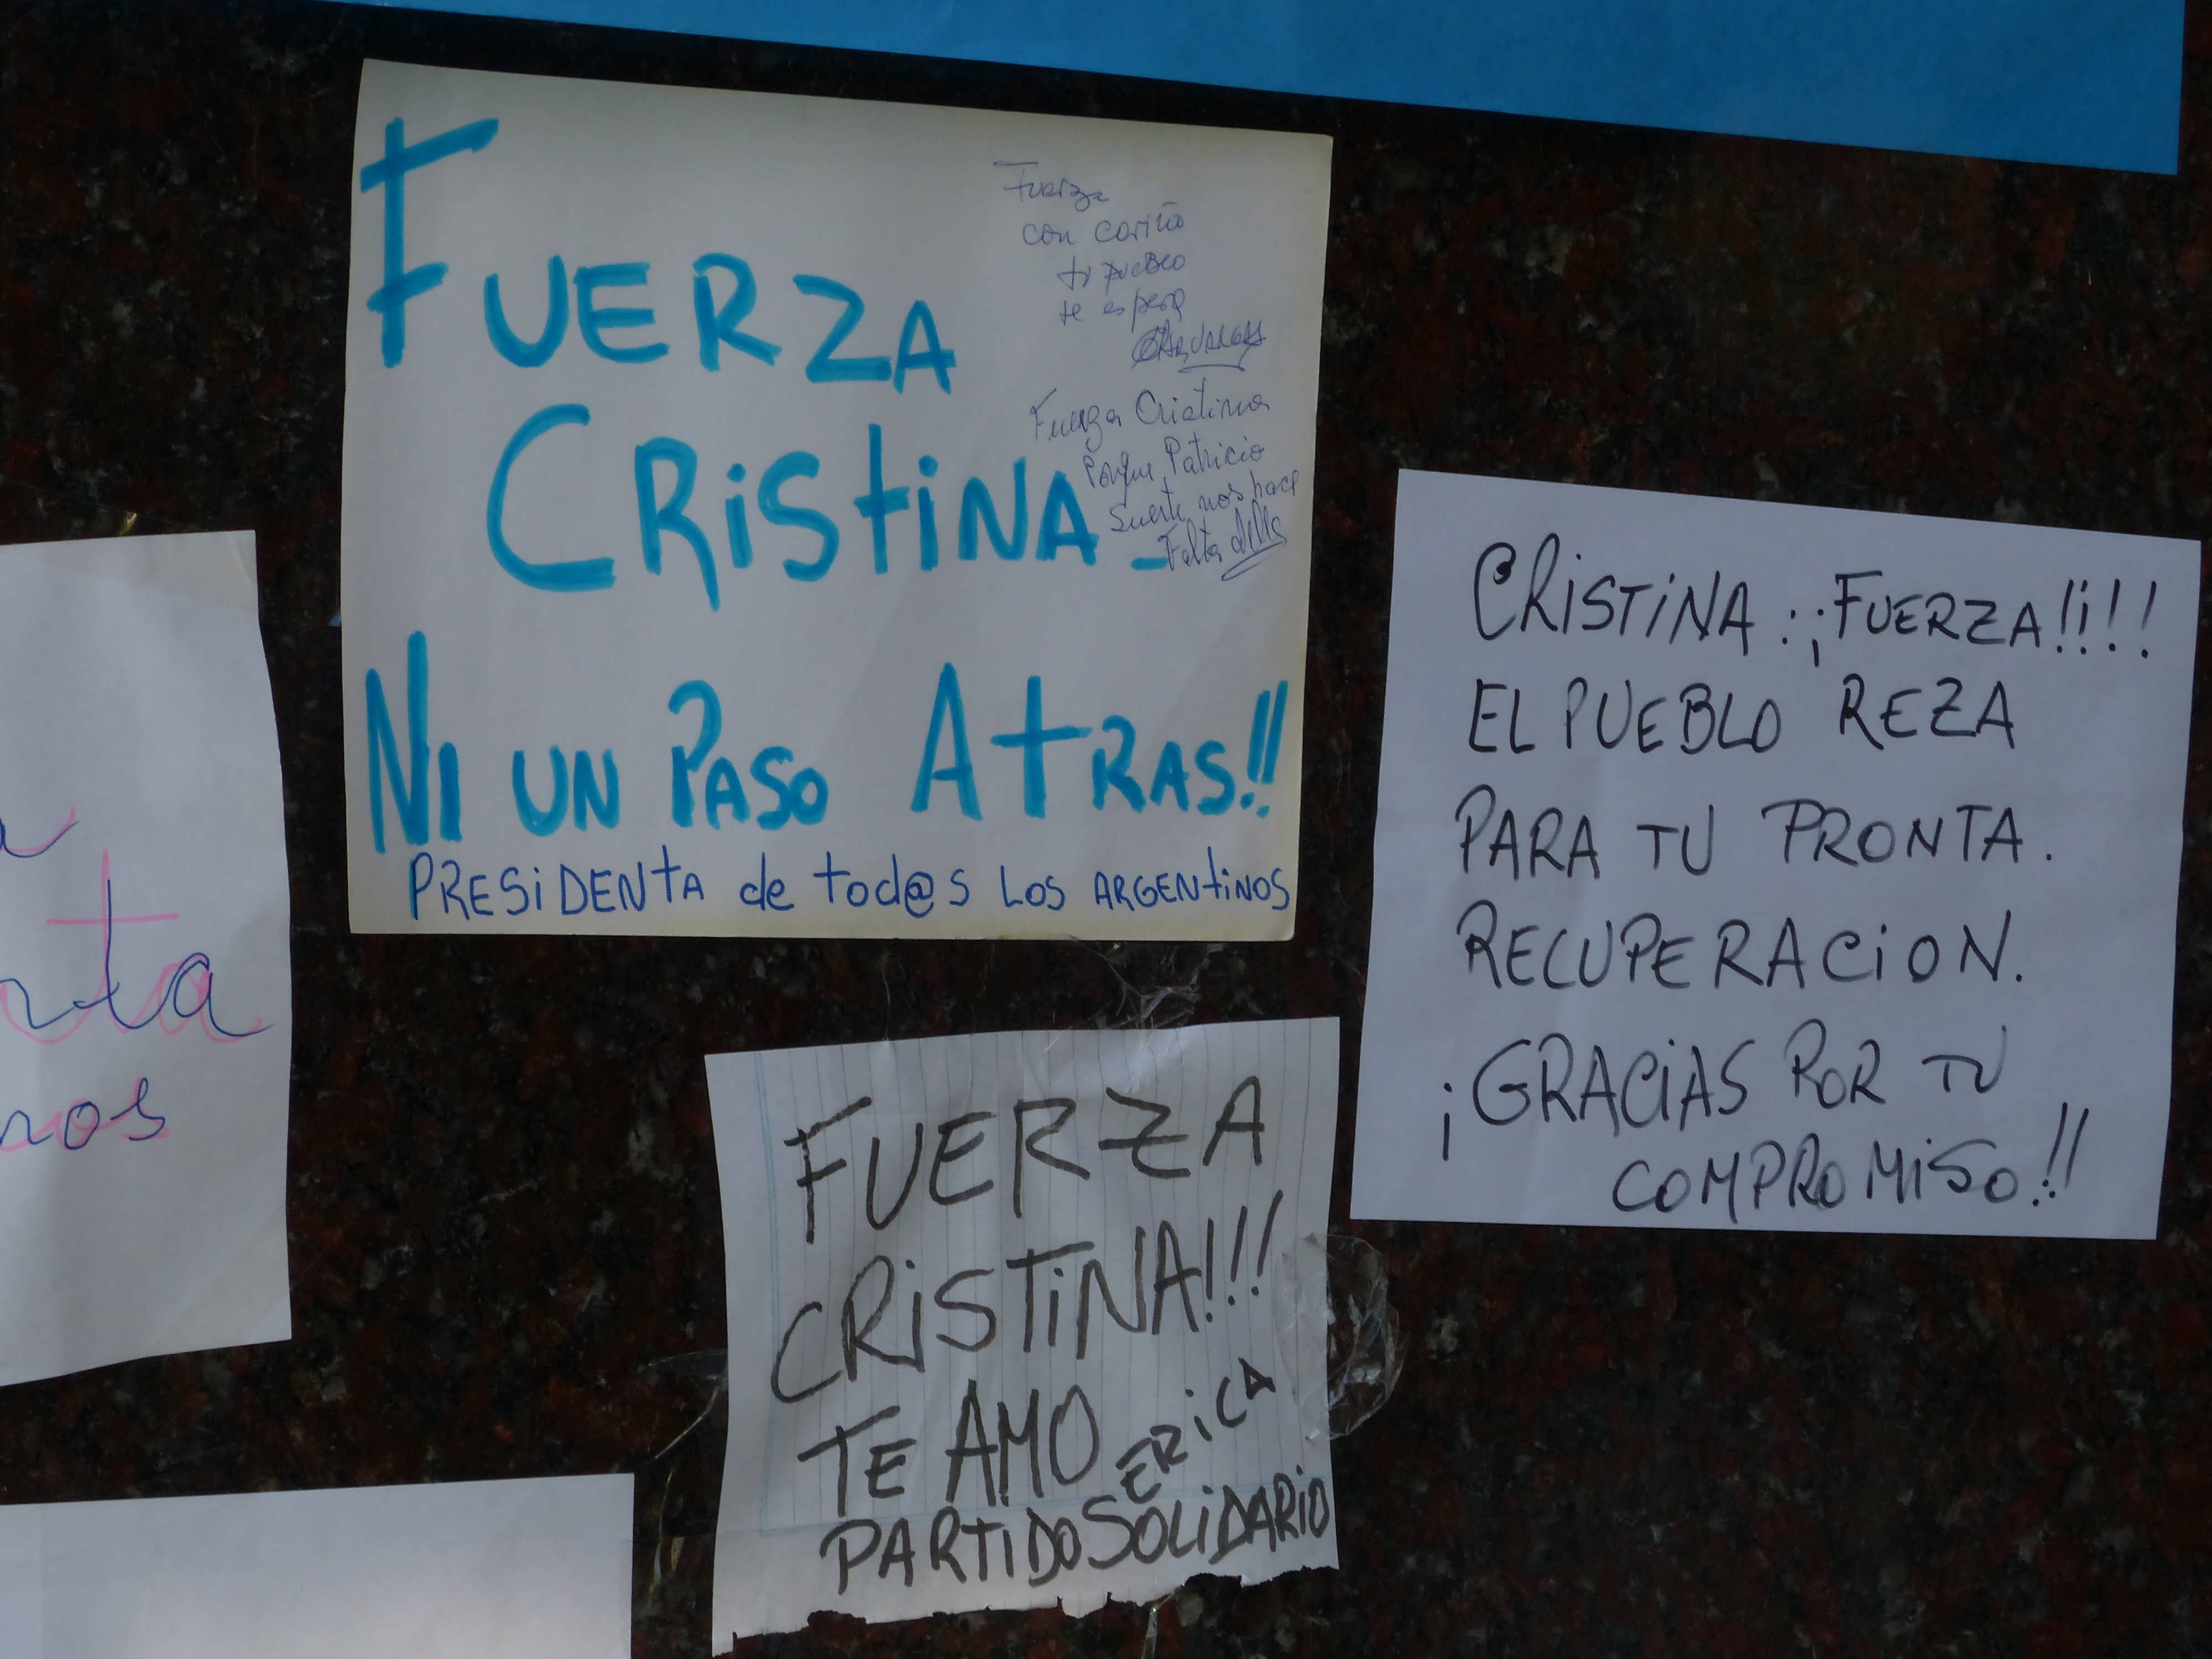 FUERZA
CRiStiNA_
Ni UN PASO AtRAS!!
PRESiDENtA de tod@s LOS ARGENtiNOS
Fuerza
con cariño
tu pueblo
te espera
Fuerza Cristina
Porque Patricio
Suerte nos hace
Falta
CRiSTiNA: ¡¡FUERZA!!!!
EL PUEBLO REZA
PARA TU PRONTA.
RECUPERACiON.
¡GRACiAS POR TU
COMPROMiSO!!
FUERZA
CRiSTiNA!!!
TE AMO ERiCA
PARTiDO SOLiDARiO
ta
nos